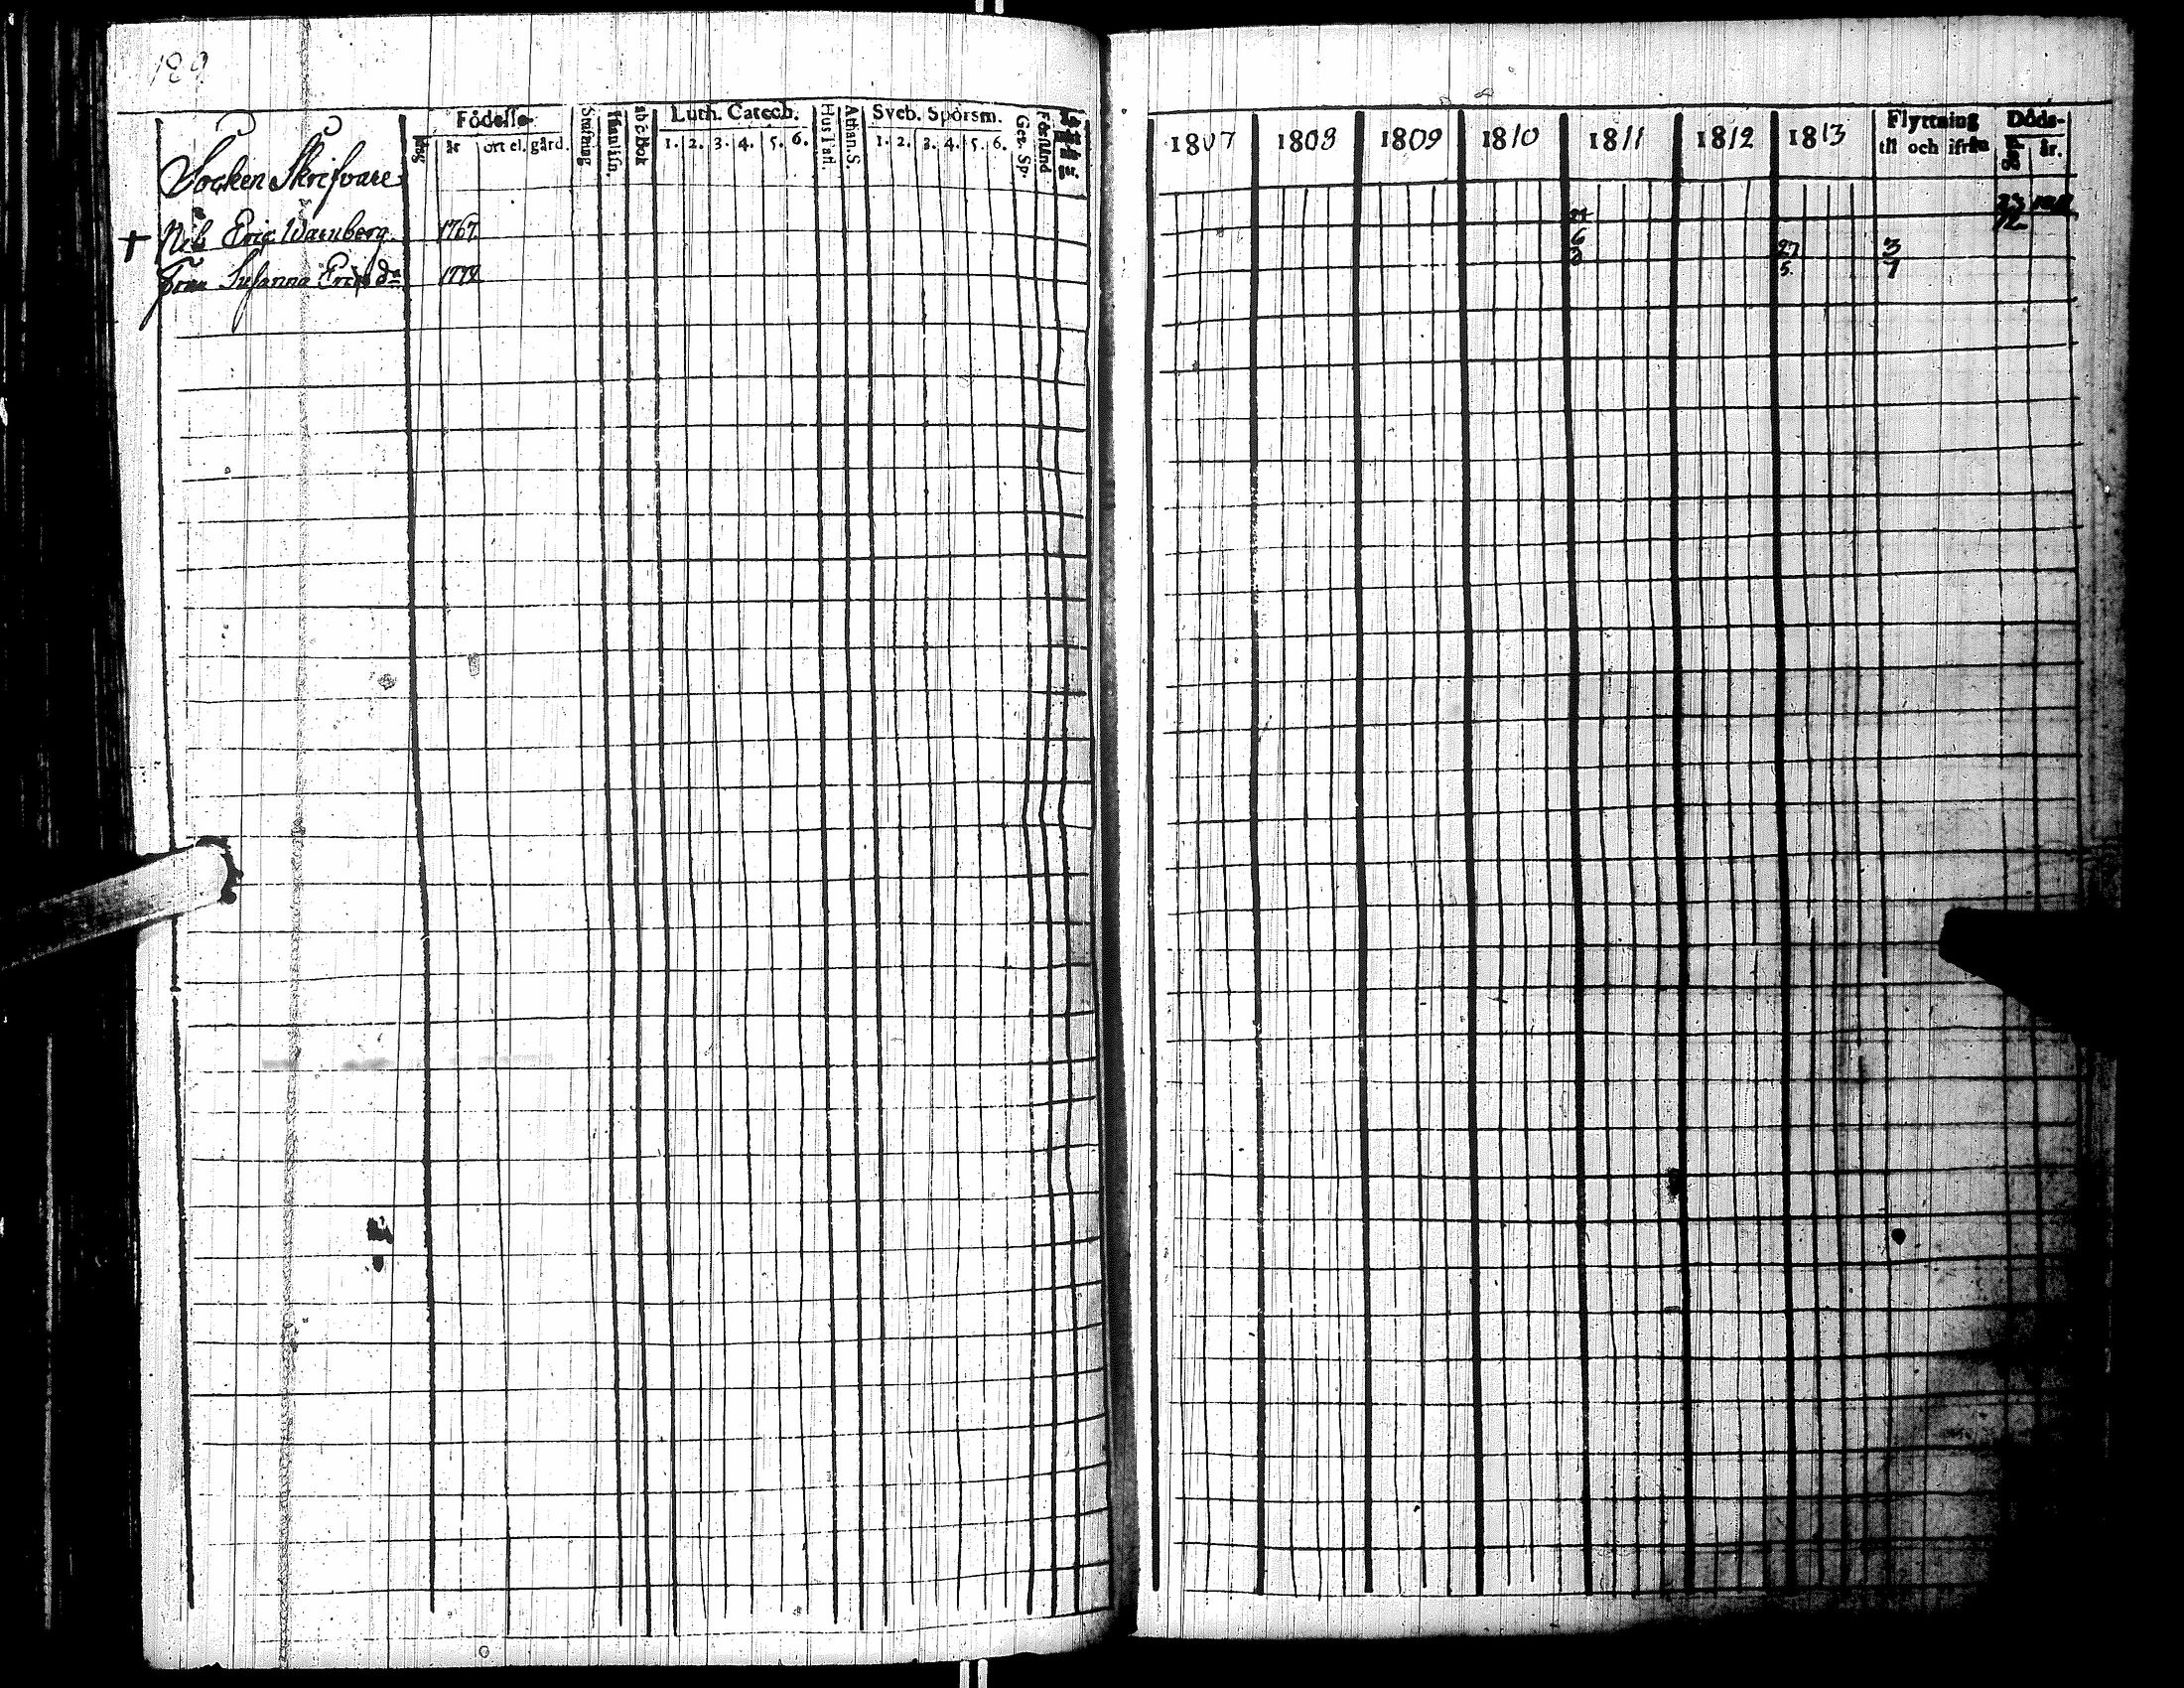 189
Födelse-
dag år ort el. gård.
abc Bok
Luth. Catech.
1. 2. 3. 4. 5. 6.
Hus Tafl.
Athan. S.
Sveb. Spörsm.
1. 2. 3. 4. 5. 6.
Gez. Sp.
Förstånd
1807 1808 1809 1810 1811 1812 1813
Flyttning
til och ifrån
Döds-
dag år.
Socken Skrifvare
† Nils Eric Warnberg 1767
23 12
Fru Susanna Ericsdr 1772
6 3
27 5
3 7